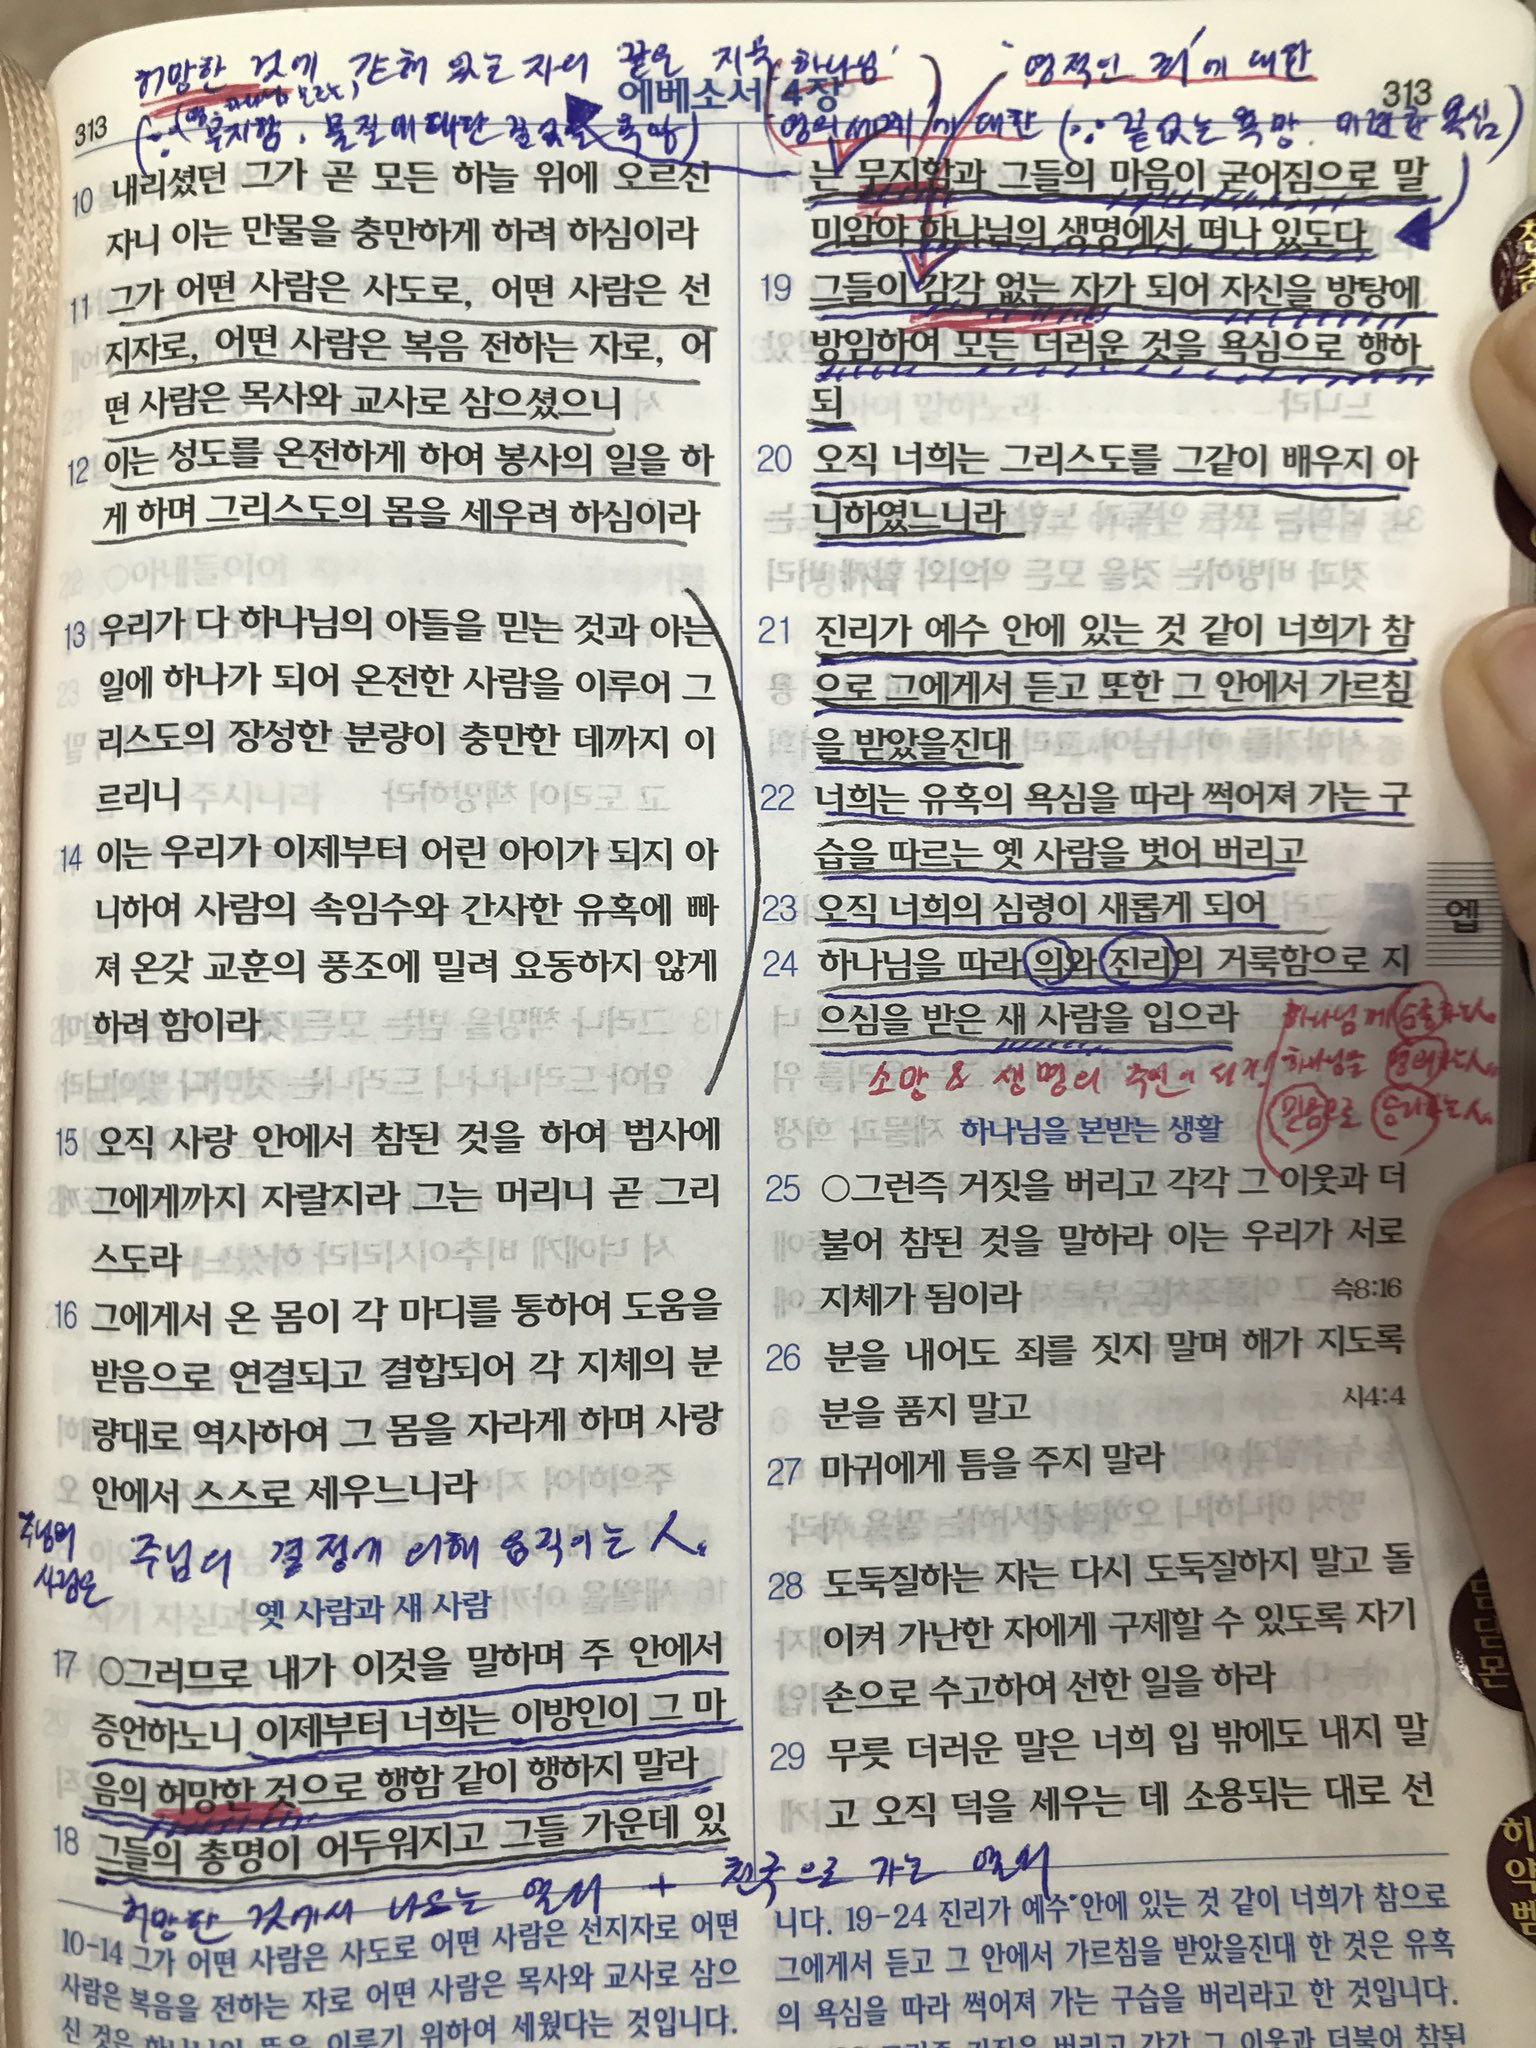 허망한 것에 갇혀 있는 자의 같은 지옥
'하나님'
'영적인 것'에 대한
313
에베소서 4장
313
무지함, 물질에 대한 끝없는 욕망)
영의 세계에 대한 (∵ 끝없는 욕망. 미련한 욕심)
10 내리셨던 그가 곧 모든 하늘 위에 오르신
자니 이는 만물을 충만하게 하려 하심이라
11 그가 어떤 사람은 사도로, 어떤 사람은 선
지자로, 어떤 사람은 복음 전하는 자로, 어
떤 사람은 목사와 교사로 삼으셨으니
12 이는 성도를 온전하게 하여 봉사의 일을 하
게 하며 그리스도의 몸을 세우려 하심이라
13 우리가 다 하나님의 아들을 믿는 것과 아는
일에 하나가 되어 온전한 사람을 이루어 그
리스도의 장성한 분량이 충만한 데까지 이
르리니
14 이는 우리가 이제부터 어린 아이가 되지 아
니하여 사람의 속임수와 간사한 유혹에 빠
져 온갖 교훈의 풍조에 밀려 요동하지 않게
하려 함이라
15 오직 사랑 안에서 참된 것을 하여 범사에
그에게까지 자랄지라 그는 머리니 곧 그리
스도라
16 그에게서 온 몸이 각 마디를 통하여 도움을
받음으로 연결되고 결합되어 각 지체의 분
량대로 역사하여 그 몸을 자라게 하며 사랑
안에서 스스로 세우느니라
주님의
사람은
주님의 결정에 의해 움직이는 人.
옛 사람과 새 사람
17 ○그러므로 내가 이것을 말하며 주 안에서
증언하노니 이제부터 너희는 이방인이 그 마
음의 허망한 것으로 행함 같이 행하지 말라
18 그들의 총명이 어두워지고 그들 가운데 있
허망한 것에서 나오는 열쇠 + 천국으로 가는 열쇠
10-14 그가 어떤 사람은 사도로 어떤 사람은 선지자로 어떤
사람은 복음을 전하는 자로 어떤 사람은 목사와 교사로 삼으
신 것은 하나님의 뜻을 이루기 위하여 세웠다는 것입니다.
는 무지함과 그들의 마음이 굳어짐으로 말
미암아 하나님의 생명에서 떠나 있도다
19 그들이 감각 없는 자가 되어 자신을 방탕에
방임하여 모든 더러운 것을 욕심으로 행하
되
20 오직 너희는 그리스도를 그같이 배우지 아
니하였느니라
21 진리가 예수 안에 있는 것 같이 너희가 참
으로 그에게서 듣고 또한 그 안에서 가르침
을 받았을진대
22 너희는 유혹의 욕심을 따라 썩어져 가는 구
습을 따르는 옛 사람을 벗어 버리고
23 오직 너희의 심령이 새롭게 되어
24 하나님을 따라 의와 진리의 거룩함으로 지
으심을 받은 새 사람을 입으라
하나님께 순종하는 人.
소망 & 생명의 주인이 되게
하나님을 경외하는 人.
믿음으로 승리하는 人.
하나님을 본받는 생활
25 ○그런즉 거짓을 버리고 각각 그 이웃과 더
불어 참된 것을 말하라 이는 우리가 서로
지체가 됨이라 슥8:16
26 분을 내어도 죄를 짓지 말며 해가 지도록
분을 품지 말고 시4:4
27 마귀에게 틈을 주지 말라
28 도둑질하는 자는 다시 도둑질하지 말고 돌
이켜 가난한 자에게 구제할 수 있도록 자기
손으로 수고하여 선한 일을 하라
29 무릇 더러운 말은 너희 입 밖에도 내지 말
고 오직 덕을 세우는 데 소용되는 대로 선
니다. 19-24 진리가 예수 안에 있는 것 같이 너희가 참으로
그에게서 듣고 그 안에서 가르침을 받았을진대 한 것은 유혹
의 욕심을 따라 썩어져 가는 구습을 버리라고 한 것입니다.
거짓을 버리고 각각 그 이웃과 더불어 참된
엡
딤
딛
몬
히
약
벧